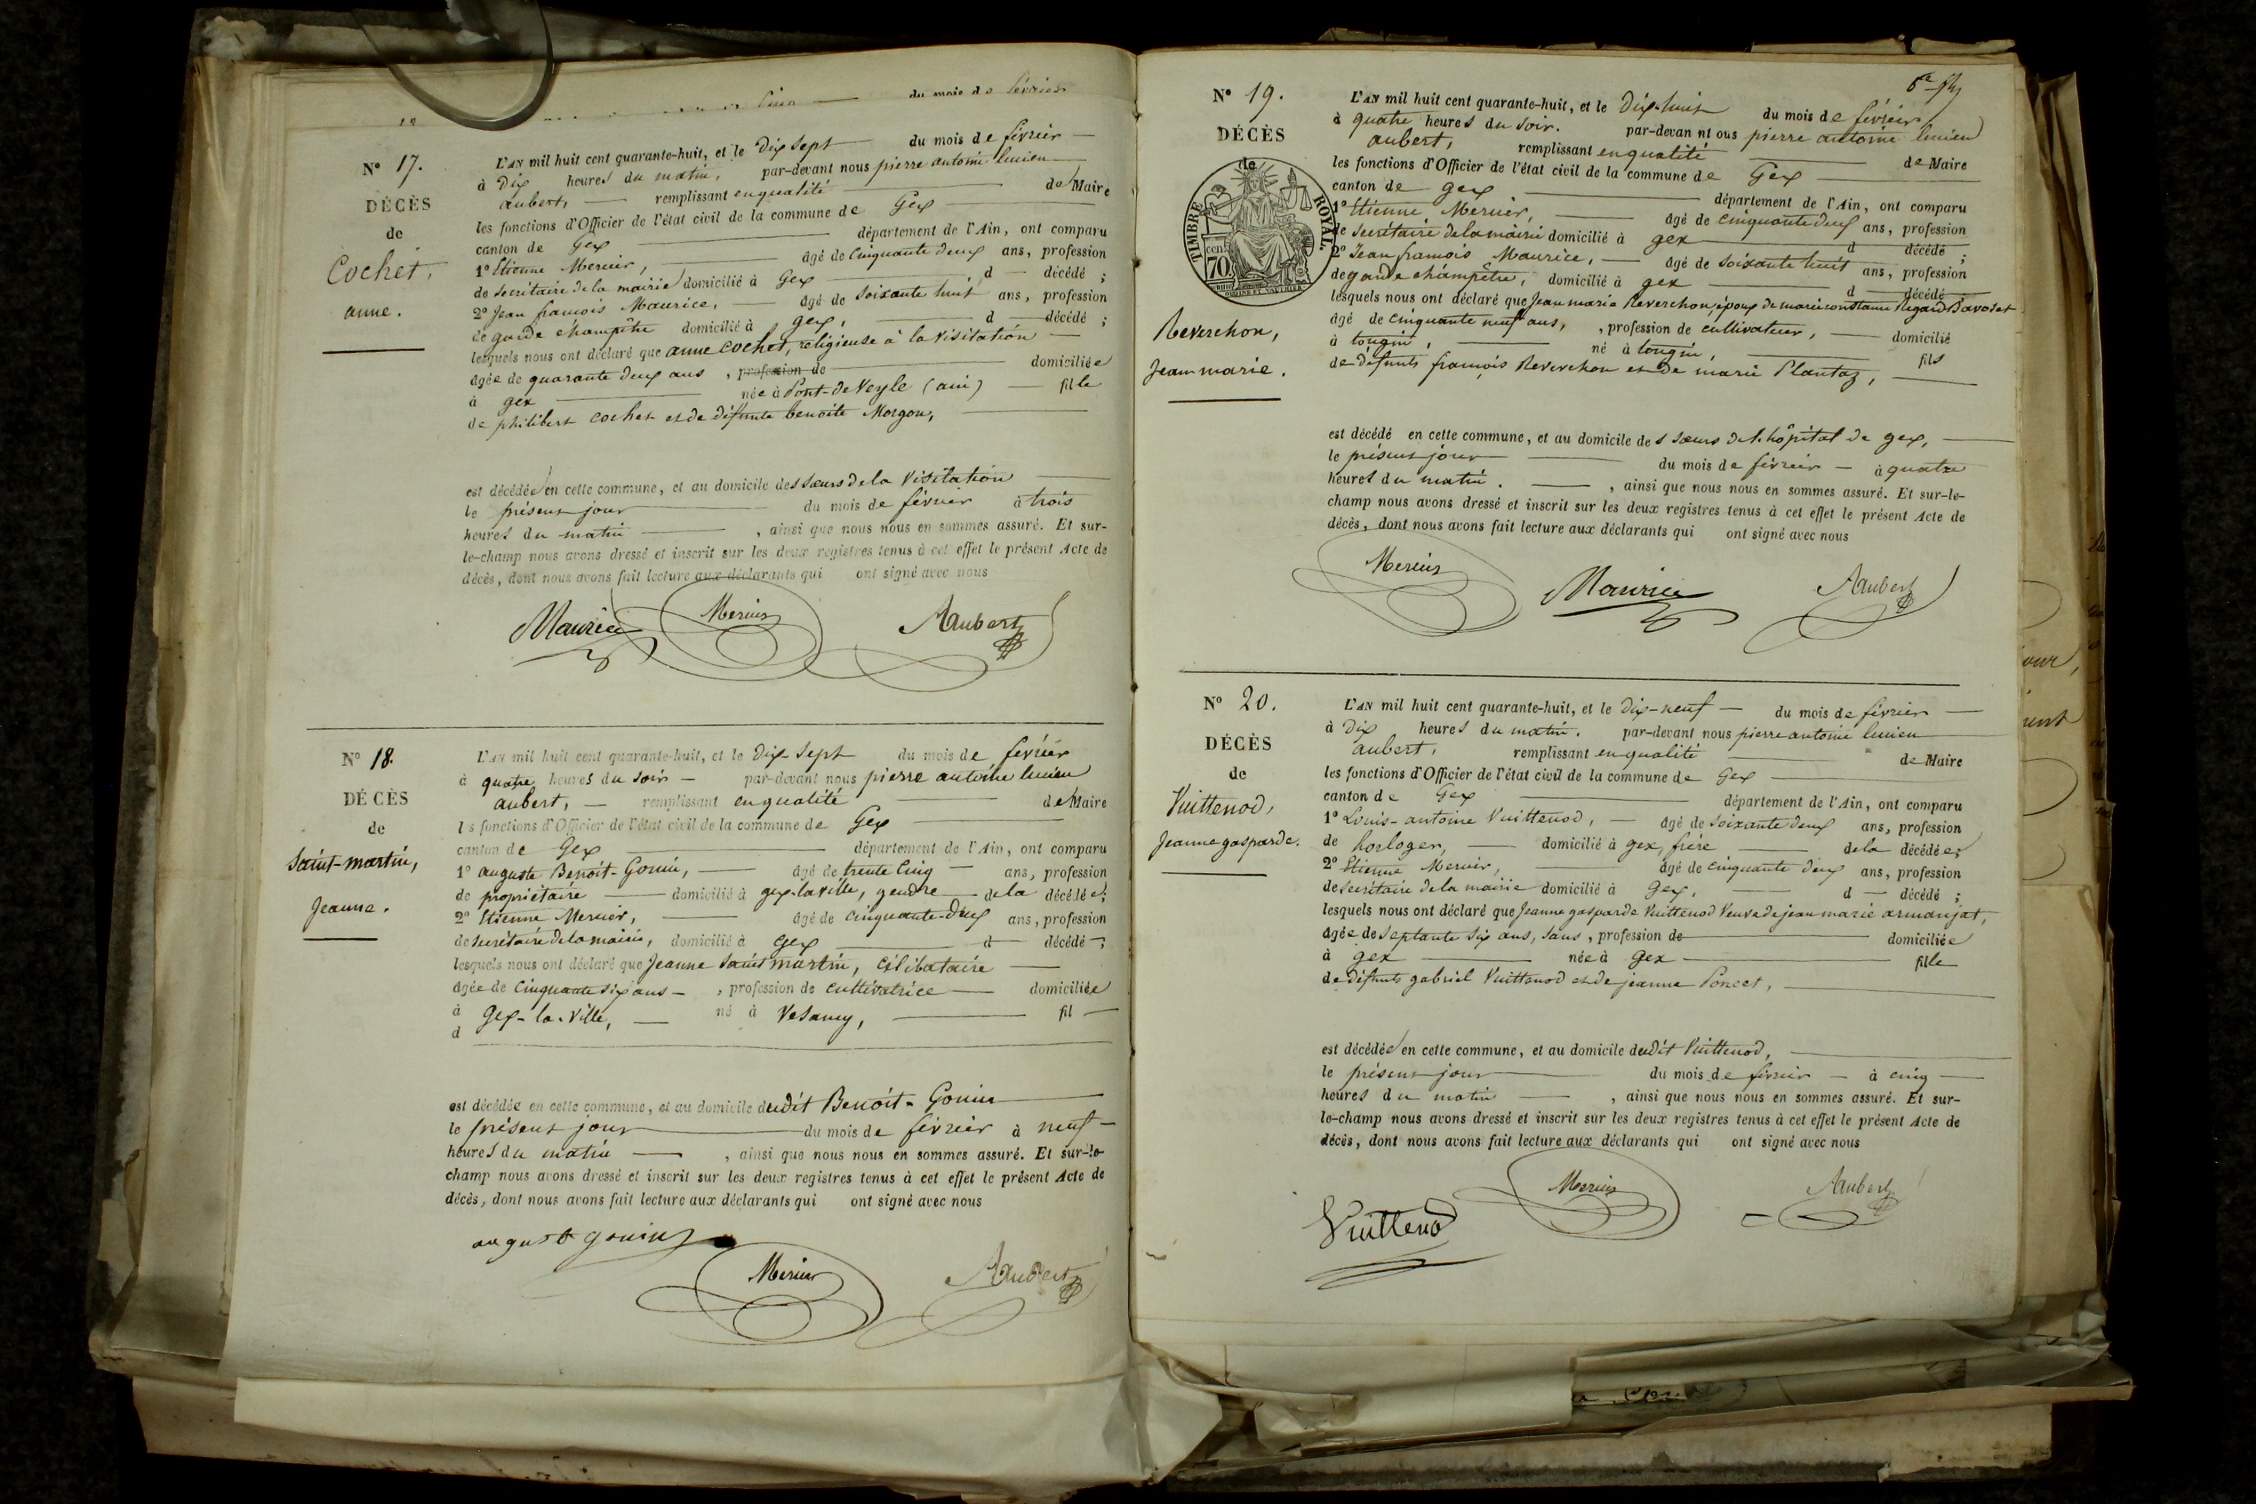 du mois de février
N° 17.
DÉCÈS
de
Cochet,
anne.
L'AN mil huit cent quarante-huit, et le Dix sept du mois de février
à Dix heures du matin, par-devant nous pierre antoine lucien
aubert, remplissant en qualité de Maire
les fonctions d'Officier de l'état civil de la commune de Gex
canton de Gex département de l'Ain, ont comparu
1° Etienne Mercier, âgé de cinquante deux ans, profession
de secrétaire de la mairie domicilié à Gex d décédé ;
2° Jean françois Maurice, âgé de soixante huit ans, profession
de garde champêtre domicilié à gex, d décédé ;
lesquels nous ont déclaré que anne cochet, religieuse à la visitation
âgée de quarante deux ans , profession de domiciliée
à gex née à Pont-de-Veyle (ain) fille
de philibert cochet et de défunte benoite Morgon,
est décédée en cette commune, et au domicile des sœurs de la Visitation
le présent jour du mois de février à trois
heures du matin , ainsi que nous nous en sommes assuré. Et sur-
le-champ nous avons dressé et inscrit sur les deux registres tenus à cet effet le présent Acte de
décès, dont nous avons fait lecture aux déclarants qui ont signé avec nous
Maurice Mercier Aubert
N° 18.
DÉCÈS
de
Saint-martin,
Jeanne.
L'AN mil huit cent quarante-huit, et le Dix-sept du mois de février
à quatre heures du soir par-devant nous pierre antoine lucien
aubert, remplissant en qualité de Maire
l s fonctions d'Officier de l'état civil de la commune de Gex
canton de Gex département de l'Ain, ont comparu
1° auguste Benoit-Gonin, âgé de trente cinq ans, profession
de propriétaire domicilié à gex-la-ville, gendre de la décédée ;
2° Etienne Mercier, âgé de cinquante-deux ans, profession
de secrétaire de la mairie, domicilié à Gex d décédé ;
lesquels nous ont déclaré que Jeanne Saint martin, célibataire
âgée de cinquante six ans , profession de cultivatrice domiciliée
à Gex-la-Ville, né à Vesancy, fil
d
est décédée en cette commune, et au domicile dudit Benoit-Gonin
le présent jour du mois de février à neuf
heures du matin , ainsi que nous nous en sommes assuré. Et sur-le-
champ nous avons dressé et inscrit sur les deux registres tenus à cet effet le présent Acte de
décès, dont nous avons fait lecture aux déclarants qui ont signé avec nous
august gonin
Mercier Aubert
N° 19.
DÉCÈS
de
TIMBRE ROYAL
70
Reverchon,
Jean marie.
L'AN mil huit cent quarante-huit, et le Dix-huit du mois de février
à quatre heures du soir. par-devan nt ous pierre antoine lucien
aubert, remplissant en qualité de Maire
les fonctions d'Officier de l'état civil de la commune de Gex
canton de gex département de l'Ain, ont comparu
1° Etienne Mercier, âgé de cinquante deux ans, profession
de secrétaire de la mairie domicilié à gex d décédé ;
2° Jean françois Maurice, âgé de soixante huit ans, profession
de garde champêtre, domicilié à gex d décédé
lesquels nous ont déclaré que Jean marie Reverchon, époux de marie constance Regard Bavoset
âgé de cinquante neuf ans, , profession de cultivateur, domicilié
à tougin, né à tougin, fils
de défunts françois Reverchon et de marie Plantaz,
est décédé en cette commune, et au domicile des sœurs de l'hôpital de gex,
le présent jour du mois de février à quatre
heures du matin. , ainsi que nous nous en sommes assuré. Et sur-le-
champ nous avons dressé et inscrit sur les deux registres tenus à cet effet le présent Acte de
décès, dont nous avons fait lecture aux déclarants qui ont signé avec nous
Mercier Maurice Aubert
N° 20.
DÉCÈS
de
Vuittenod,
Jeanne gasparde.
L'AN mil huit cent quarante-huit, et le Dix-neuf du mois de février
à Dix heures du matin. par-devant nous pierre antoine lucien
aubert, remplissant en qualité de Maire
les fonctions d'Officier de l'état civil de la commune de Gex
canton de Gex département de l'Ain, ont comparu
1° Louis-antoine Vuittenod, âgé de soixante deux ans, profession
de horloger, domicilié à gex, frère de la décédée ;
2° Etienne Mercier, âgé de cinquante deux ans, profession
de secrétaire de la mairie domicilié à Gex, d décédé ;
lesquels nous ont déclaré que Jeanne gasparde Vuittenod Veuve de jean marie armanjat,
âgée de septante six ans, sans , profession de domiciliée
à gex née à gex fille
de défunts gabriel Vuittenod et de jeanne Poncet,
est décédée en cette commune, et au domicile dudit Vuittenod,
le présent jour du mois de février à cinq
heures du matin , ainsi que nous nous en sommes assuré. Et sur-
le-champ nous avons dressé et inscrit sur les deux registres tenus à cet effet le présent Acte de
décès, dont nous avons fait lecture aux déclarants qui ont signé avec nous
Vuittenod Mercier Aubert